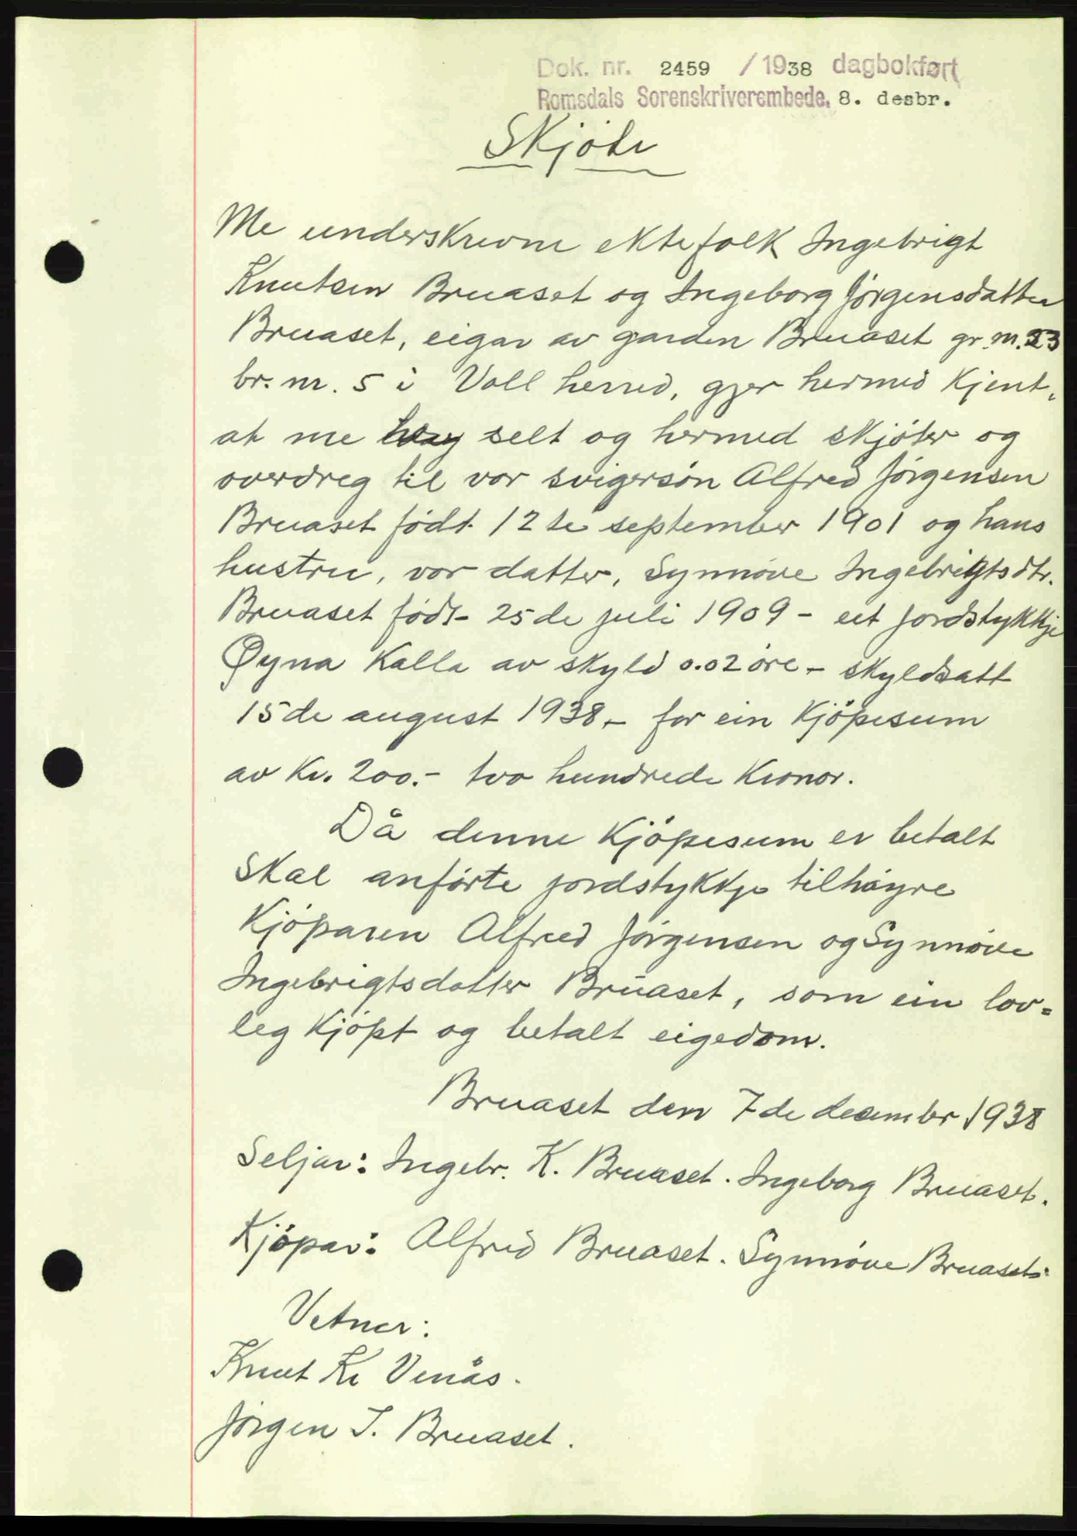 Dok. nr. 2459 / 1938 dagbokført
Romsdals Sorenskriverembede, 8. desbr.
Skjöte
Me underskrevne ektefolk Ingebrigt
Knutsen Bruaset og Ingeborg Jørgensdatter
Bruaset, eigar av garden Bruaset gr. nr. 23
br. nr. 5 i Voll herred, gjer hermed kjent,
at me selt og hermed skjøter og
overdreg til vor svigersøn Alfred Jørgensen
Bruaset født 12te september 1901 og hans
hustru, vor datter, Synnøve Ingebrigtsdtr.
Bruaset født 25de juli 1909 - eit jordstykkje
Øyna kalla av skyld 0.02 øre - skyldsatt
15de august 1938 - for ein kjöpesum
av kr. 200.- tvo hundrede kronor.
Då denne kjöpesum er betalt
skal anførte jordstykkje tilhøyre
kjöparen Alfred Jørgensen og Synnøve
Ingebrigtsdatter Bruaset, som ein lov=
leg kjöpt og betalt eigedom.
Bruaset den 7de desember 1938
Seljar: Ingebr. K. Bruaset. Ingeborg Bruaset.
Kjöpar: Alfred Bruaset. Synnøve Bruaset.
Vetner:
Knut Kr Venås.
Jørgen I. Bruaset.